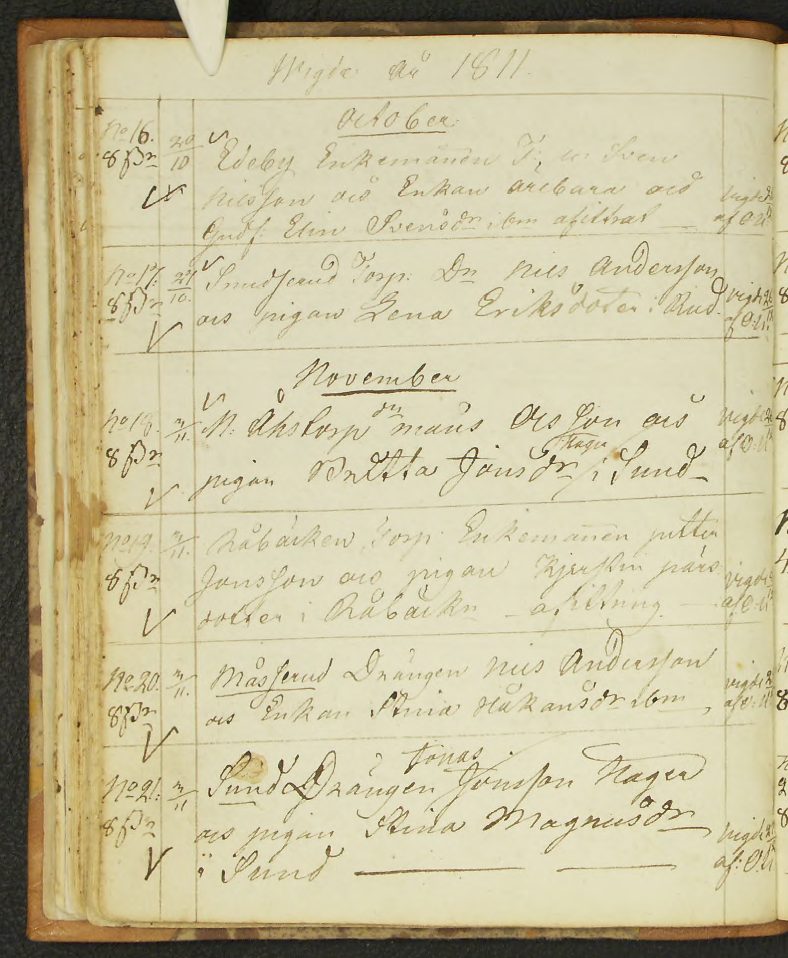 Wigde år 1811.
October
No 16. 20/10 Edeby Enkemannen Sven
8 sk Nilsson och Enkan ärebara och
Gudf: Elin Svensdr ibm afsittrat
vigde
af O:U
No 17. 27/10. Smidserud Torp: Dn Nils Andersson
8 sk och pigan Lena Eriksdoter i Rud.
vigde
af O:U
November
No 18. 3/11. N: Åhstorp dn måns Olsson och
8 sk pigan Britta Jonsdr Hager i Sund
vigde
af O:U
No 19. 3/11. Råbäcken Torp Enkemannen petter
8 sk Jonsson och pigan Kjerstin pärs
dotter i Råbäckn afsittning
vigde
af O:U
No 20. 3/11. Måsserud Drängen Nils Andersson
8 sk och Enkan Stina Håkansdr ibm
vigde
af O:U
No 21. 3/11 Sund Drängen Jonas Jonsson Hager
8 sk och pigan Stina Magnusdr
i Sund
vigde
af: O:U